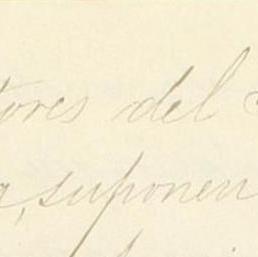 tores del
a, suponen